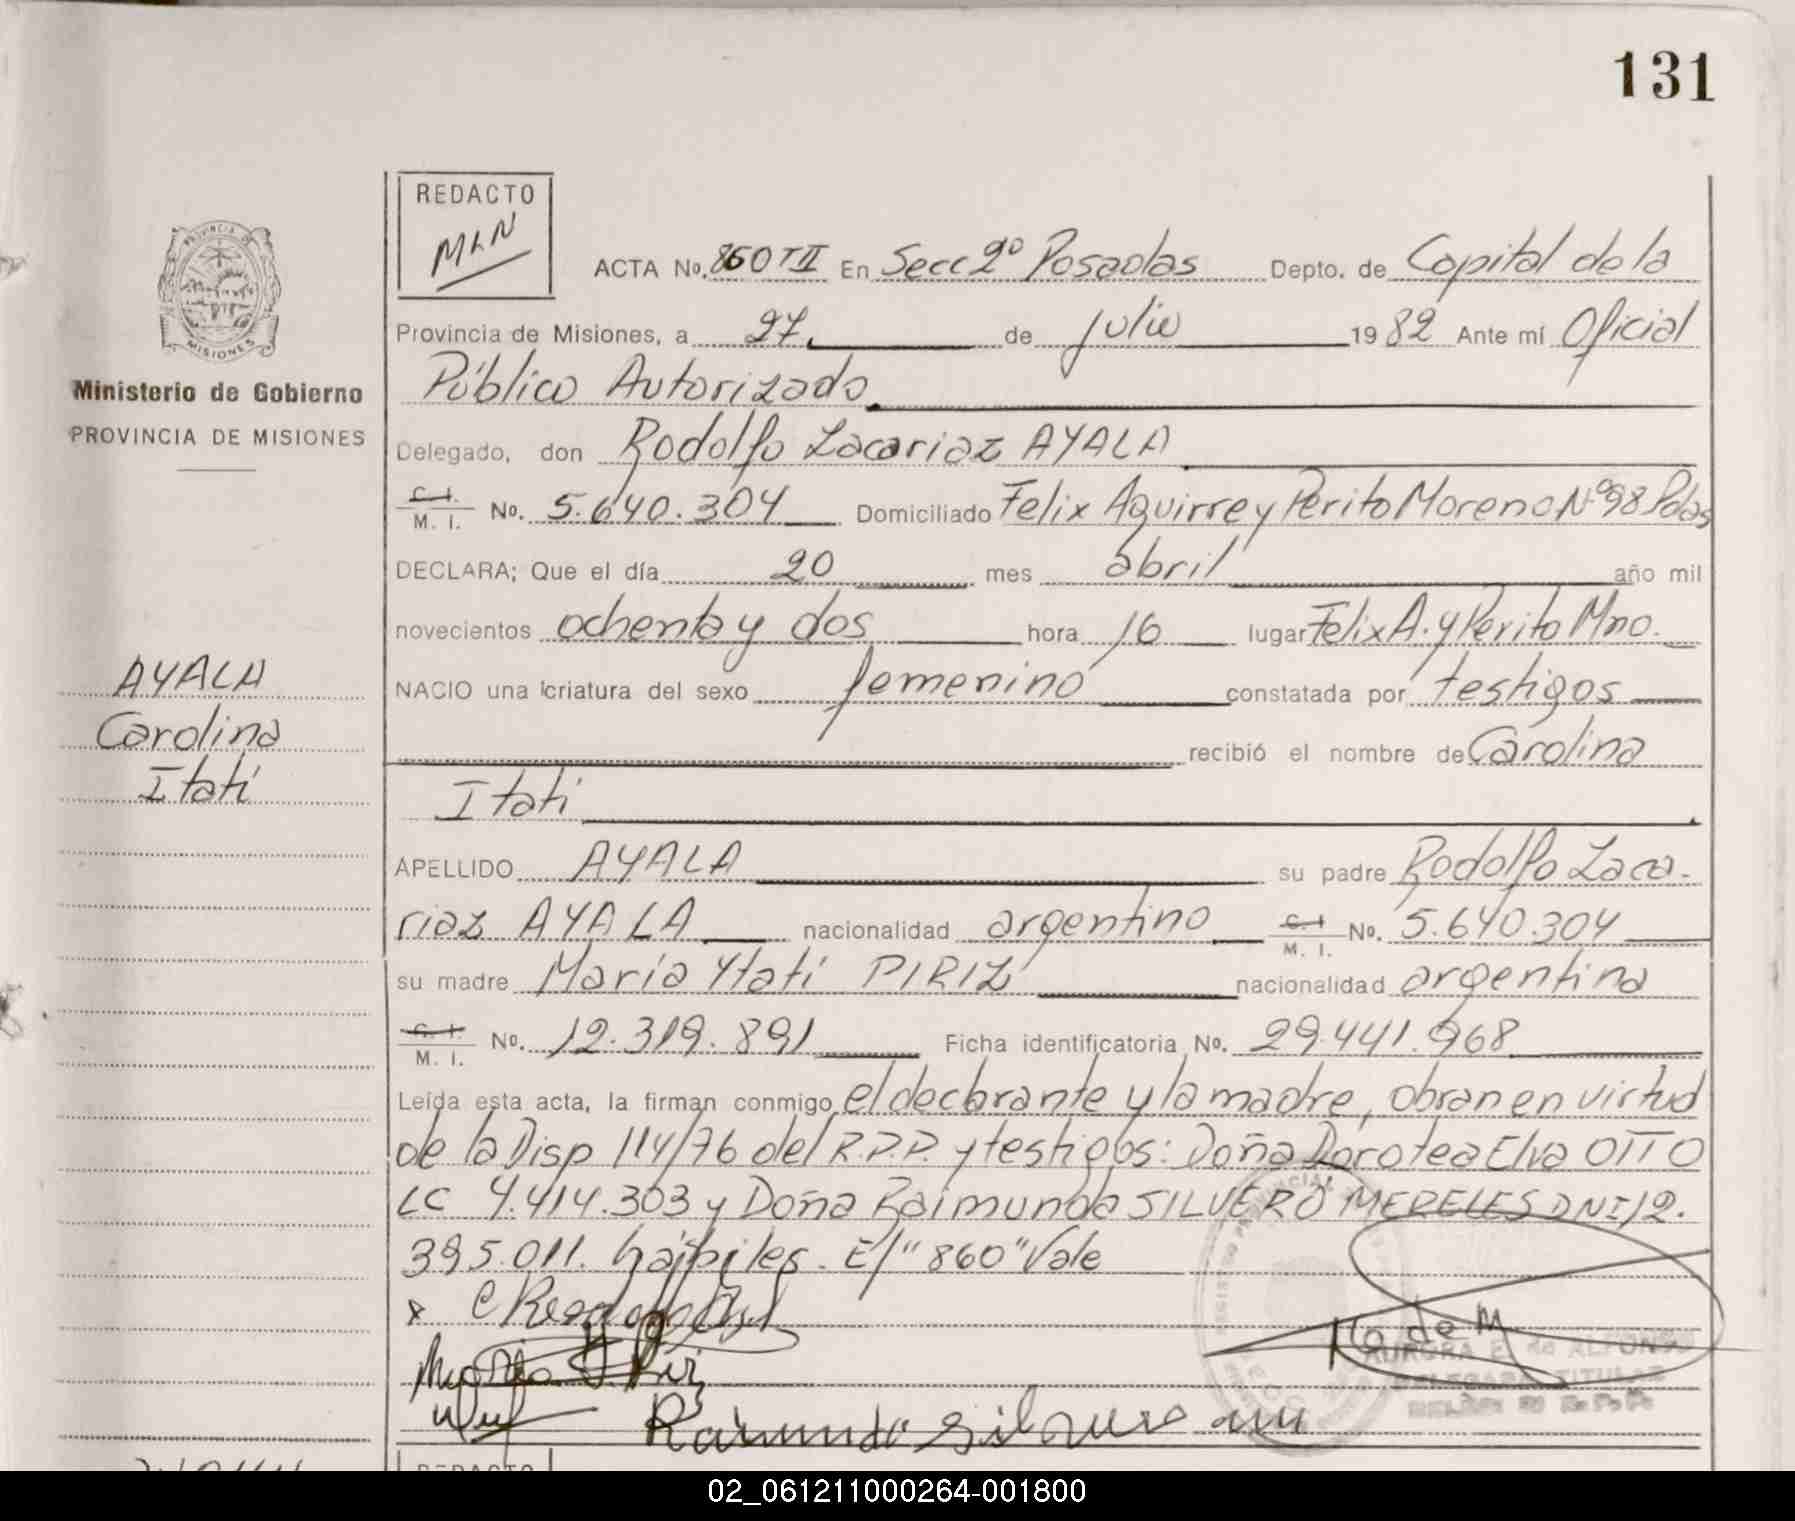 131
REDACTO
MLN
PROVINCIA DE
MISIONES
Ministerio de Gobierno
PROVINCIA DE MISIONES
ACTA No. 860 TII En Secc 2º Posadas Depto. de Capital de la
Provincia de Misiones, a 27 de Julio 1982 Ante mí Oficial
Público Autorizado
Delegado, don Rodolfo Zacariaz AYALA
C. I.
M. I. No. 5.640.304 Domiciliado Felix Aguirre y Perito Moreno Nº 98 Pdas
DECLARA; Que el día 20 mes abril año mil
novecientos ochenta y dos hora 16 lugar Felix A. y Perito Mno.
NACIO una criatura del sexo femenino constatada por testigos
recibió el nombre de Carolina
Itatí
AYALA
Carolina
Itatí
APELLIDO AYALA su padre Rodolfo Zaca-
riaz AYALA nacionalidad argentino C. I.
M. I. No. 5.640.304
su madre María Ytatí PIRIZ nacionalidad argentina
C. I.
M. I. No. 12.319.891 Ficha identificatoria No. 29.441.968
Leída esta acta, la firman conmigo el declarante y la madre, obran en virtud
de la Disp 114/76 del R.P.P. y testigos: Doña Dorotea Elva OTTO
LC 4.414.303 y Doña Raimunda SILVERO MERELES DNI 12.
395.011. hábiles. E/ "860" Vale
x
Raimunda Silvero
AURORA E. de ALFONSO
DELEGADA TITULAR
REDACTO
02_061211000264-001800